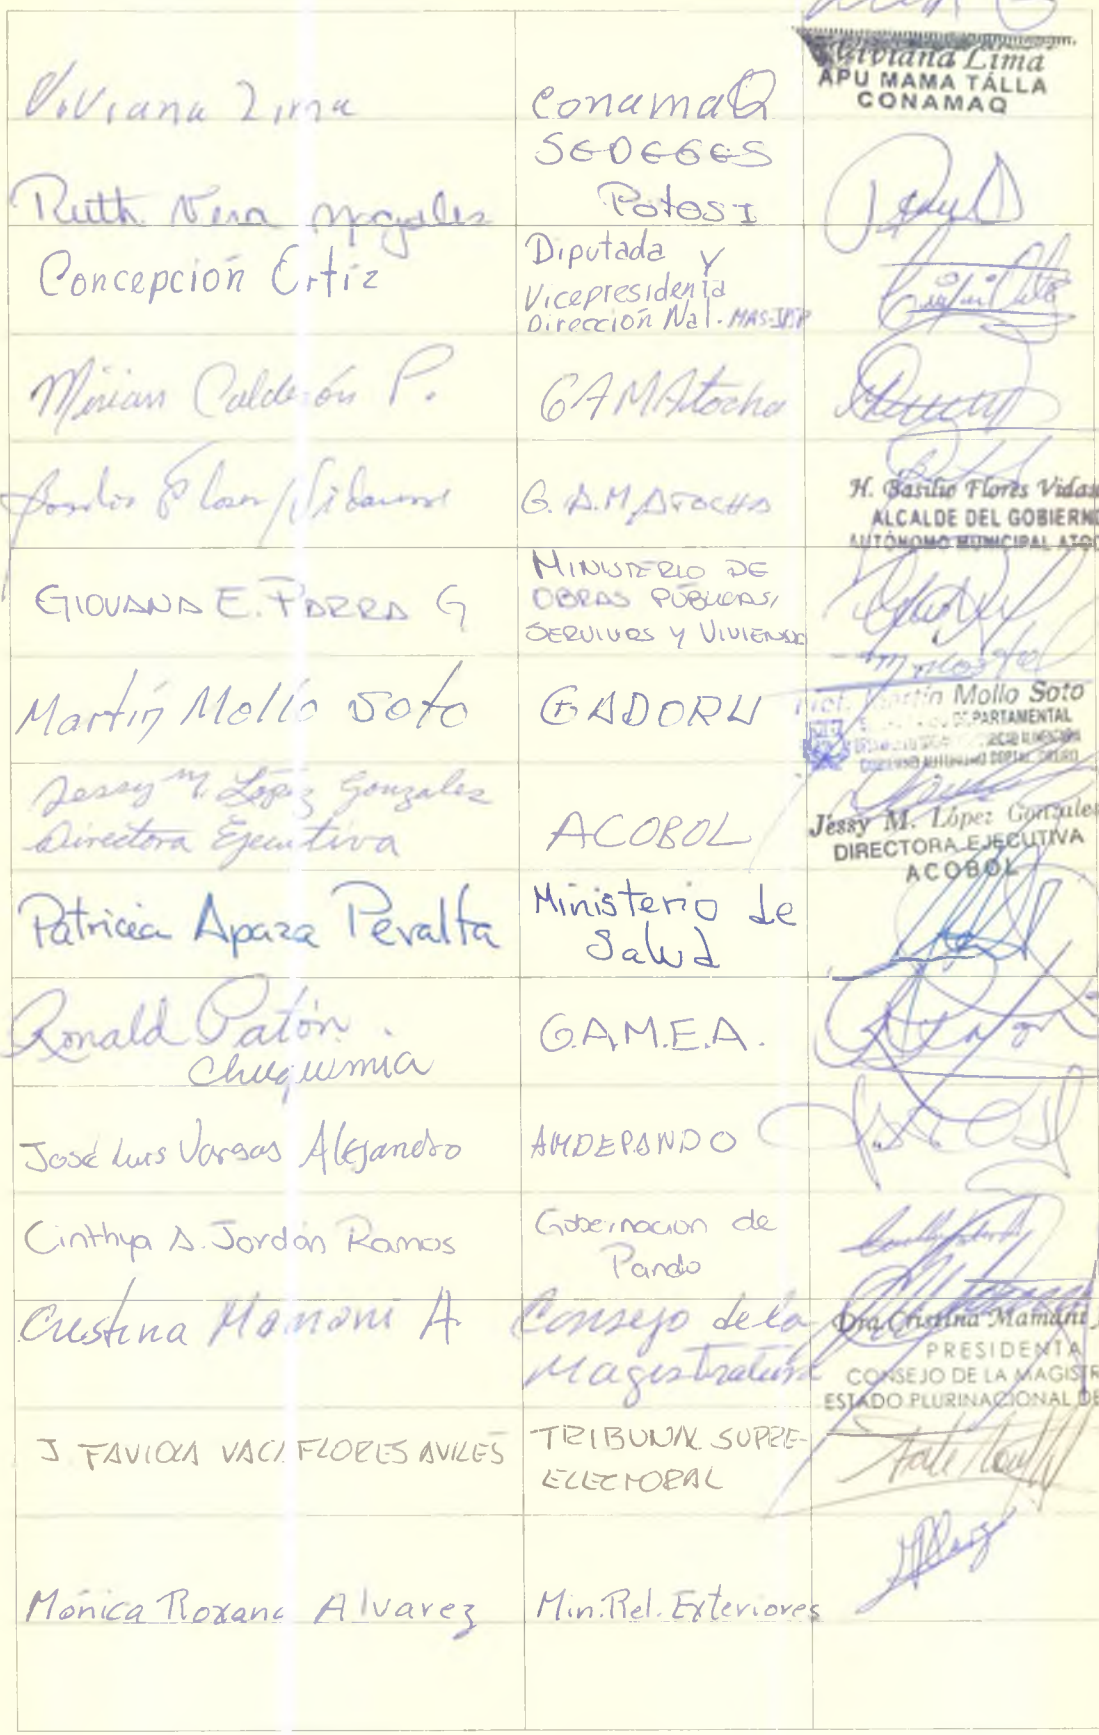 Viviana Lima
ConamaQ
Viviana Lima
APU MAMA TÁLLA
CONAMAQ
Ruth Vera
SEDEGES
Potosí
Concepción Ortiz
Diputada y
Vicepresidenta
Dirección Nal. MAS-IPSP
Mirian Calderón P.
GAMAtocha
Basilio Flores Vidaurre
G.A.M. ATOCHA
H. Basilio Flores
ALCALDE DEL GOBIERNO
AUTÓNOMO MUNICIPAL
GIOVANA E. PARRA G
MINISTERIO DE
OBRAS PÚBLICAS,
SERVICIOS Y VIVIENDA
Martín Mollo Soto
GADORU
Martín Mollo Soto
DEPARTAMENTAL
Jessy M. López Gonzales
Directora Ejecutiva
ACOBOL
Jessy M. López Gonzales
DIRECTORA EJECUTIVA
ACOBOL
Patricia Apaza Peralta
Ministerio de
Salud
Ronald Patón.
Chuquimia
G.A.M.E.A.
José Luis Vargas Alejandro
AMDEPANDO
Cinthya A. Jordán Ramos
Gobernacion de
Pando
Cristina Mamani A.
Consejo de la
Magistratura
Dra. Cristina Mamani
PRESIDENTA
CONSEJO DE LA MAGISTR
ESTADO PLURINACIONAL DE
J. FAVIOLA VACAFLORES AVILES
TRIBUNAL SUPRE-
ELECTORAL
Mónica Roxana Alvarez
Min. Rel. Exteriores